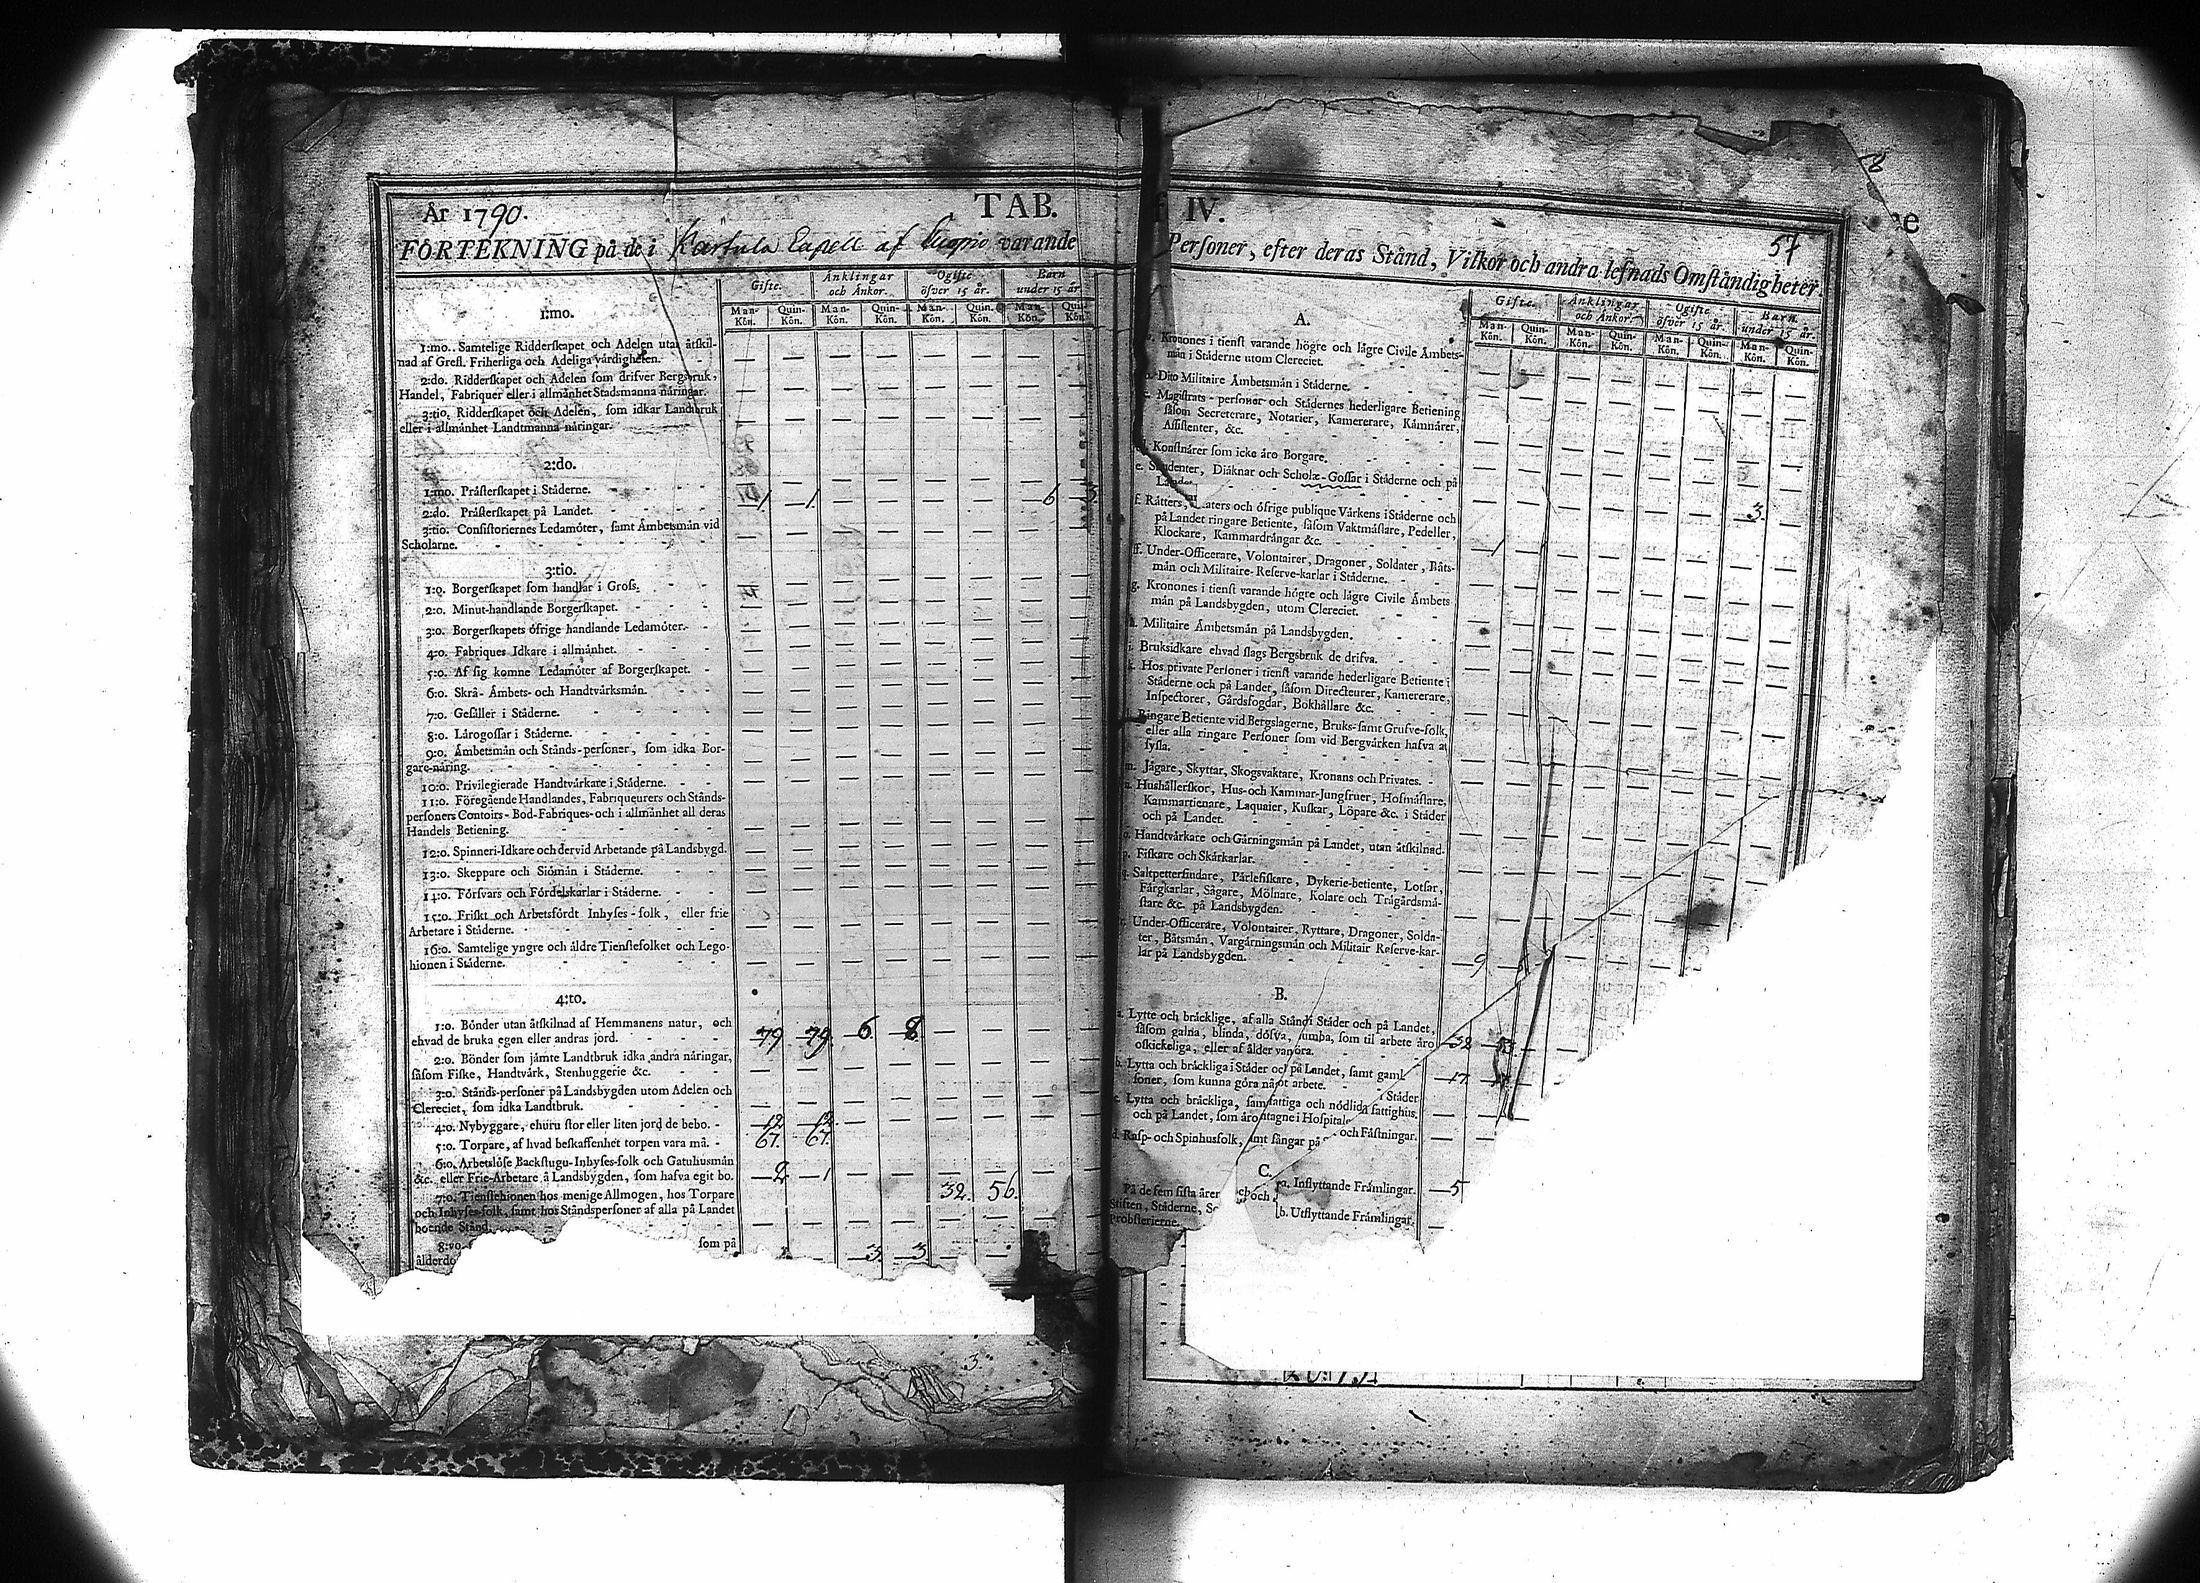 År 1790.
TAB.
FÖRTEKNING på de i Karttula Capell af Kuopio varande
Gifte.
Änklingar och Änkor.
Ogifte öfver 15 år.
Barn under 15 år
Man-Kön. Quin-Kön. Man-Kön. Quin-Kön. Man-Kön. Quin-Kön. Man-Kön. Quin-Kön
1:mo.
1:mo. Samtelige Ridderskapet och Adelen utan åtskil-
nad af Grefl. Friherliga och Adeliga värdigheten. — — — — — — — —
2:do. Ridderskapet och Adelen som drifver Bergsbruk,
Handel, Fabriquer eller i allmänhet Stadsmanna näringar. — — — — — — — —
3:tio. Ridderskapet och Adelen, som idkar Landtbruk
eller i allmänhet Landtmanna näringar. — — — — — — — —
2:do.
1:mo. Prästerskapet i Städerne. — — — — — — — —
2:do. Prästerskapet på Landet. 1 1. — — — — 6 3.
3:tio. Consistoriernes Ledamöter, samt Ämbetsmän vid
Scholarne. — — — — — — — —
3:tio.
1:o. Borgerskapet som handlar i Gross. — — — — — — — —
2:o. Minut-handlande Borgerskapet. — — — — — — — —
3:o. Borgerskapets öfrige handlande Ledamöter. — — — — — — — —
4:o. Fabriques Idkare i allmänhet. — — — — — — — —
5:o. Af sig komne Ledamöter af Borgerskapet. — — — — — — — —
6:o. Skrå-Ämbets- och Handtvärksmän. — — — — — — — —
7:o. Gesäller i Städerne. — — — — — — — —
8:o. Lärogossar i Städerne. — — — — — — — —
9:o. Ämbetsmän och Stånds-personer, som idka Bor-
gare-näring. — — — — — — — —
10:o. Privilegierade Handtvärkare i Städerne. — — — — — — — —
11:o. Föregående Handlandes, Fabriqueurers och Stånds-
personers Contoirs-Bod-Fabriques- och i allmänhet all deras
Handels Betiening. — — — — — — — —
12:o. Spinneri-Idkare och dervid Arbetande på Landsbygd. — — — — — — — —
13:o. Skeppare och Siömän i Städerne. — — — — — — — —
14:o. Försvars och Fördelskarlar i Städerne. — — — — — — — —
15:o. Friskt och Arbetsfördt Inhyses-folk, eller frie
Arbetare i Städerne. — — — — — — — —
16:o. Samtelige yngre och äldre Tienstefolket och Lego-
hionen i Städerne. — — — — — — — —
4:to.
1:o. Bönder utan åtskilnad af Hemmanens natur, och
ehvad de bruka egen eller andras jord. 79 79. 6. 8 — — — —
2:o. Bönder som jämte Landtbruk idka andra näringar,
såsom Fiske, Handtvärk, Stenhuggerie &c. — — — — — — — —
3:o. Stånds-personer på Landsbygden utom Adelen och
Clereciet, som idka Landtbruk. — — — — — — — —
4:o. Nybyggare, ehuru stor eller liten jord de bebo. 12 12. — — — — — —
5:o. Torpare, af hvad beskaffenhet torpen vara må. 67. 67.
6:o. Arbetslöse Backstugu-Inhyses-folk och Gatuhusmän
&c. eller Frie-Arbetare å Landsbygden, som hafva egit bo. 2 1 — — — — — —
7:o. Tienstehionen hos menige Allmogen, hos Torpare 32. 56.
och Inhyses-folk, samt hos Ståndspersoner af alla på Landet
boende Stånd. — — — — — — — —
8:vo. som på
ålderdo 3. 3.
3
F IV.
57
Personer, efter deras Stånd, Vilkor och andra lefnads Omständigheter.
Gifte.
Änklingar och Änkor.
Ogifte öfver 15 år.
Barn under 15 år.
Man-Kön. Quin-Kön. Man-Kön. Quin-Kön. Man-Kön. Quin-Kön. Man-Kön. Quin-Kön.
A.
Kronones i tienst varande högre och lägre Civile Ämbets-
män i Städerne utom Clereciet. — — — — — — — —
b. Dito Militaire Ämbetsmän i Städerne. — — — — — — — —
c. Magistrats-personer och Städernes hederligare Betiening
såsom Secreterare, Notarier, Kamererare, Kämnärer,
Assistenter, &c. — — — — — — — —
Konstnärer som icke äro Borgare. — — — — — — — —
e. Studenter, Diäknar och Scholæ-Gossar i Städerne och på
Landet — — — — — — 3. —
f. Rätters, och öfrige publique Värkens i Städerne och
på Landet ringare Betiente, såsom Vaktmästare, Pedeller,
Klockare, Kammardrängar &c. 1
ff. Under-Officerare, Volontairer, Dragoner, Soldater, Båts-
män och Militaire-Reserve-karlar i Städerne. — — — — — — — —
g. Kronones i tienst varande högre och lägre Civile Ämbets
män på Landsbygden, utom Clereciet. — — — — — — — —
h. Militaire Ämbetsmän på Landsbygden. — — — — — — — —
i. Bruksidkare ehvad slags Bergsbruk de drifva. — — — — — — — —
k. Hos private Personer i tienst varande hederligare Betiente i
Städerne och på Landet, såsom Directeurer, Kamererare,
Inspectorer, Gårdsfogdar, Bokhållare &c. — — — — — — — —
l. Ringare Betiente vid Bergslagerne, Bruks- samt Grufve-folk,
eller alla ringare Personer som vid Bergvärken hafva at
syssla. — — — — — — — —
m. Jägare, Skyttar, Skogsvaktare, Kronans och Privates. — — — — — — — —
n. Hushållerskor, Hus- och Kammar-Jungfruer, Hofmästare,
Kammartienare, Laquaier, Kuskar, Löpare &c. i Städer
och på Landet. — — — — — — — —
o. Handtvärkare och Gärningsmän på Landet, utan åtskilnad. — — — — — — —
p. Fiskare och Skärkarlar. — — — — — — —
q. Saltpettersiudare, Pärlefiskare, Dykerie-betiente, Lotsar,
Färgkarlar, Sågare, Mölnare, Kolare och Trägårdsmä-
stare &c. på Landsbygden. — — — — — —
r. Under-Officerare, Volontairer, Ryttare, Dragoner, Solda-
ter, Båtsmän, Vargärningsmän och Militair Reserve-kar-
lar på Landsbygden. 9
B.
a. Lytte och bräcklige, af alla Stånd i Städer och på Landet,
såsom galna, blinda, döfva, dumba, som til arbete äro
oskickeliga, eller af ålder vanföra. 32
b. Lytta och bräckliga i Städer och på Landet, samt gaml
soner, som kunna göra något arbete. 17
i Städer
c. Lytta och bräckliga, sam fattiga och nödlida fattighus.
och på Landet, som äro intagne i Hospital
d. Rasp- och Spinhusfolk, samt fångar på och Fästningar.
C.
På de fem sista åren och
Stiften, Städerne, So
Probsterierne.
a. Inflyttande Främlingar. 5
b. Utflyttande Främlingar. —